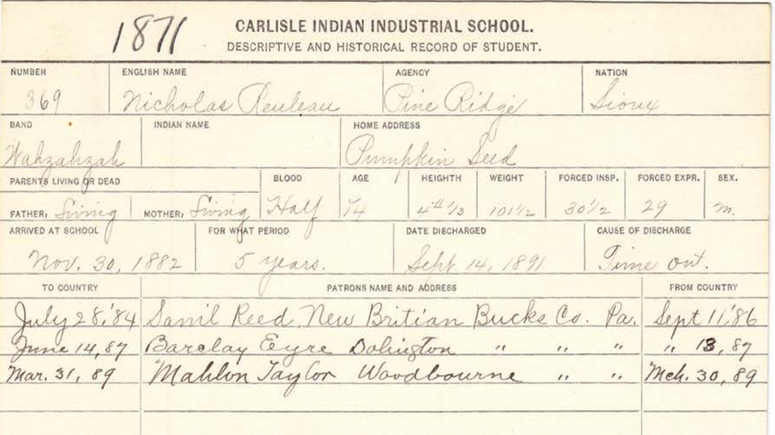 1871
CARLISLE INDIAN INDUSTRIAL SCHOOL.
DESCRIPTIVE AND HISTORICAL RECORD OF STUDENT.
NUMBER ENGLISH NAME AGENCY NATION
369 Nicholas Ruleau Pine Ridge Sioux
BAND INDIAN NAME HOME ADDRESS
Wahzahzah Pumpkin Seed
PARENTS LIVING OR DEAD BLOOD AGE HEIGHTH WEIGHT FORCED INSP. FORCED EXPR. SEX.
FATHER, Living MOTHER, Living Half 14 101 1/2 30 1/2 29 m.
ARRIVED AT SCHOOL FOR WHAT PERIOD DATE DISCHARGED CAUSE OF DISCHARGE
Nov. 30, 1882 5 years. Sept. 14, 1891 Time out.
TO COUNTRY PATRONS NAME AND ADDRESS FROM COUNTRY
July 28, '84 Saml Reed, New Britian Bucks Co. Pa. Sept 11, '86
June 14, 87 Barclay Eyre Dolington " " " " 13, 87
Mar. 31, 89 Mahlon Taylor Woodbourne " " " Mch. 30, 89